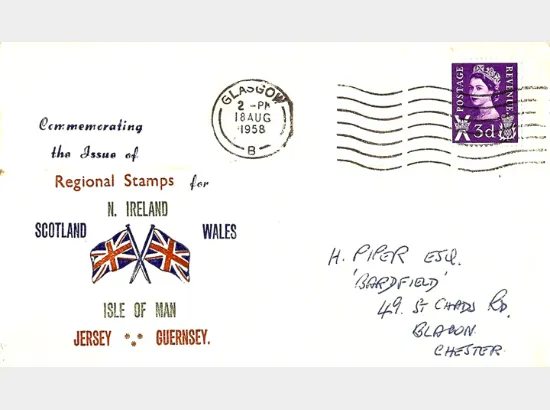 GLASGOW
2 -PM
18 AUG
1958
B
POSTAGE
REVENUE
3d
Commemorating
the Issue of
Regional Stamps for
N. IRELAND
SCOTLAND WALES
ISLE OF MAN
JERSEY GUERNSEY.
H. PIPER ESQ.
'BARDFIELD'
49. ST CHADS RD.
BLACON
CHESTER.